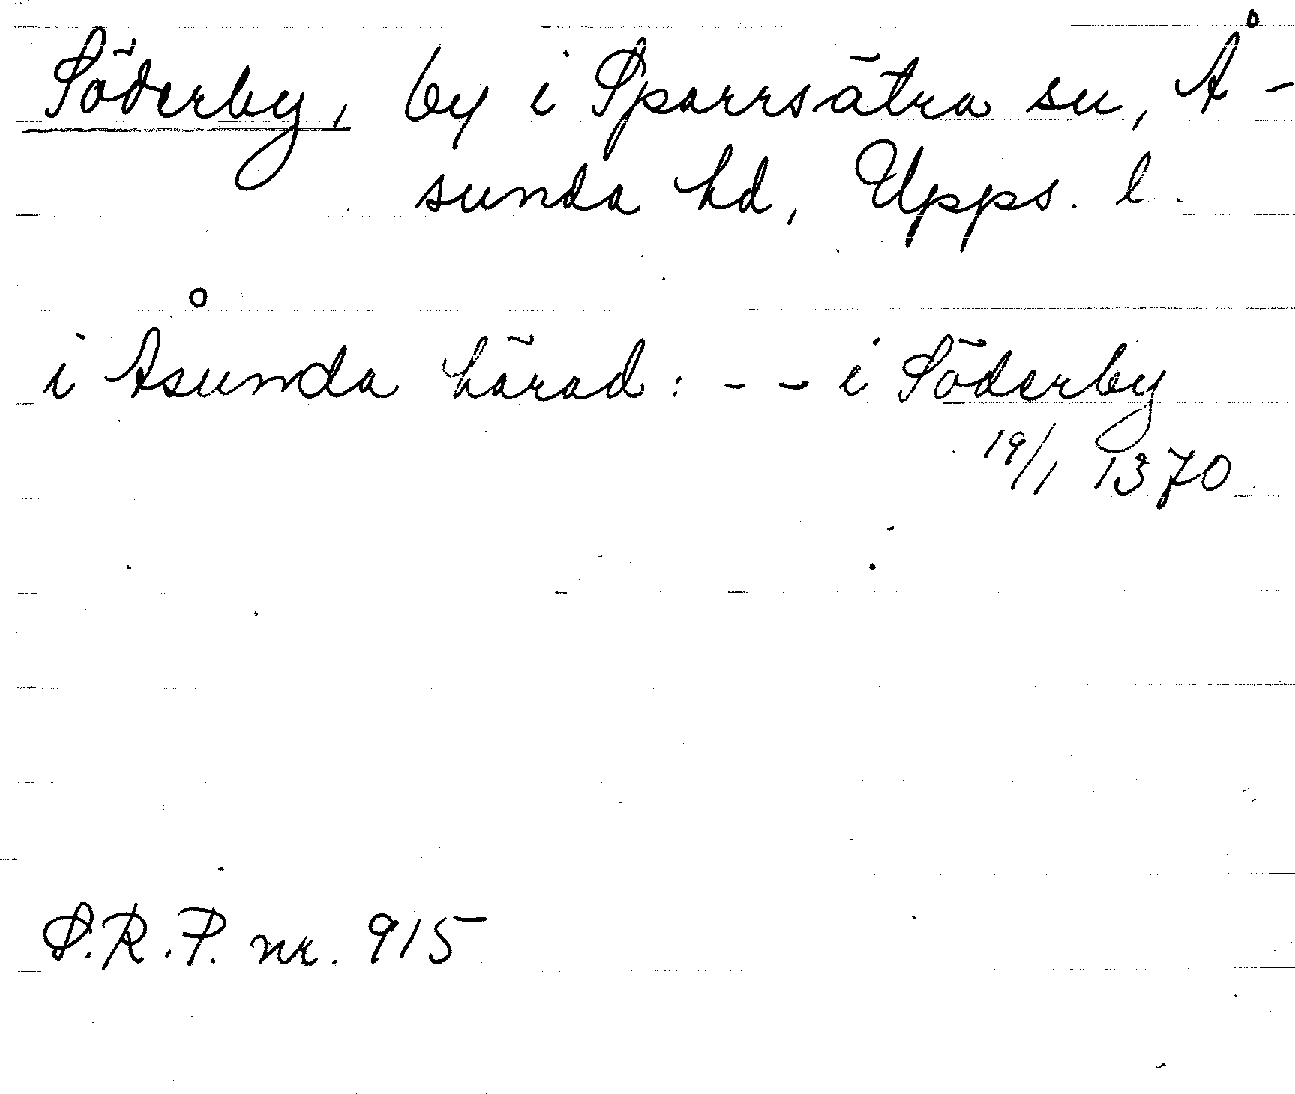 Söderby, by i Sparrsätra sn, Å-
sunda hd, Upps. l.
i Åsunda härad: - - i Söderby
19/1 1370
S.R.P. nr. 915